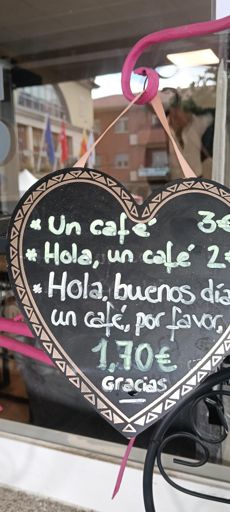 * Un café 3€
* Hola, un café 2€
* Hola, buenos día
un café, por favor,
1,70€
Gracias